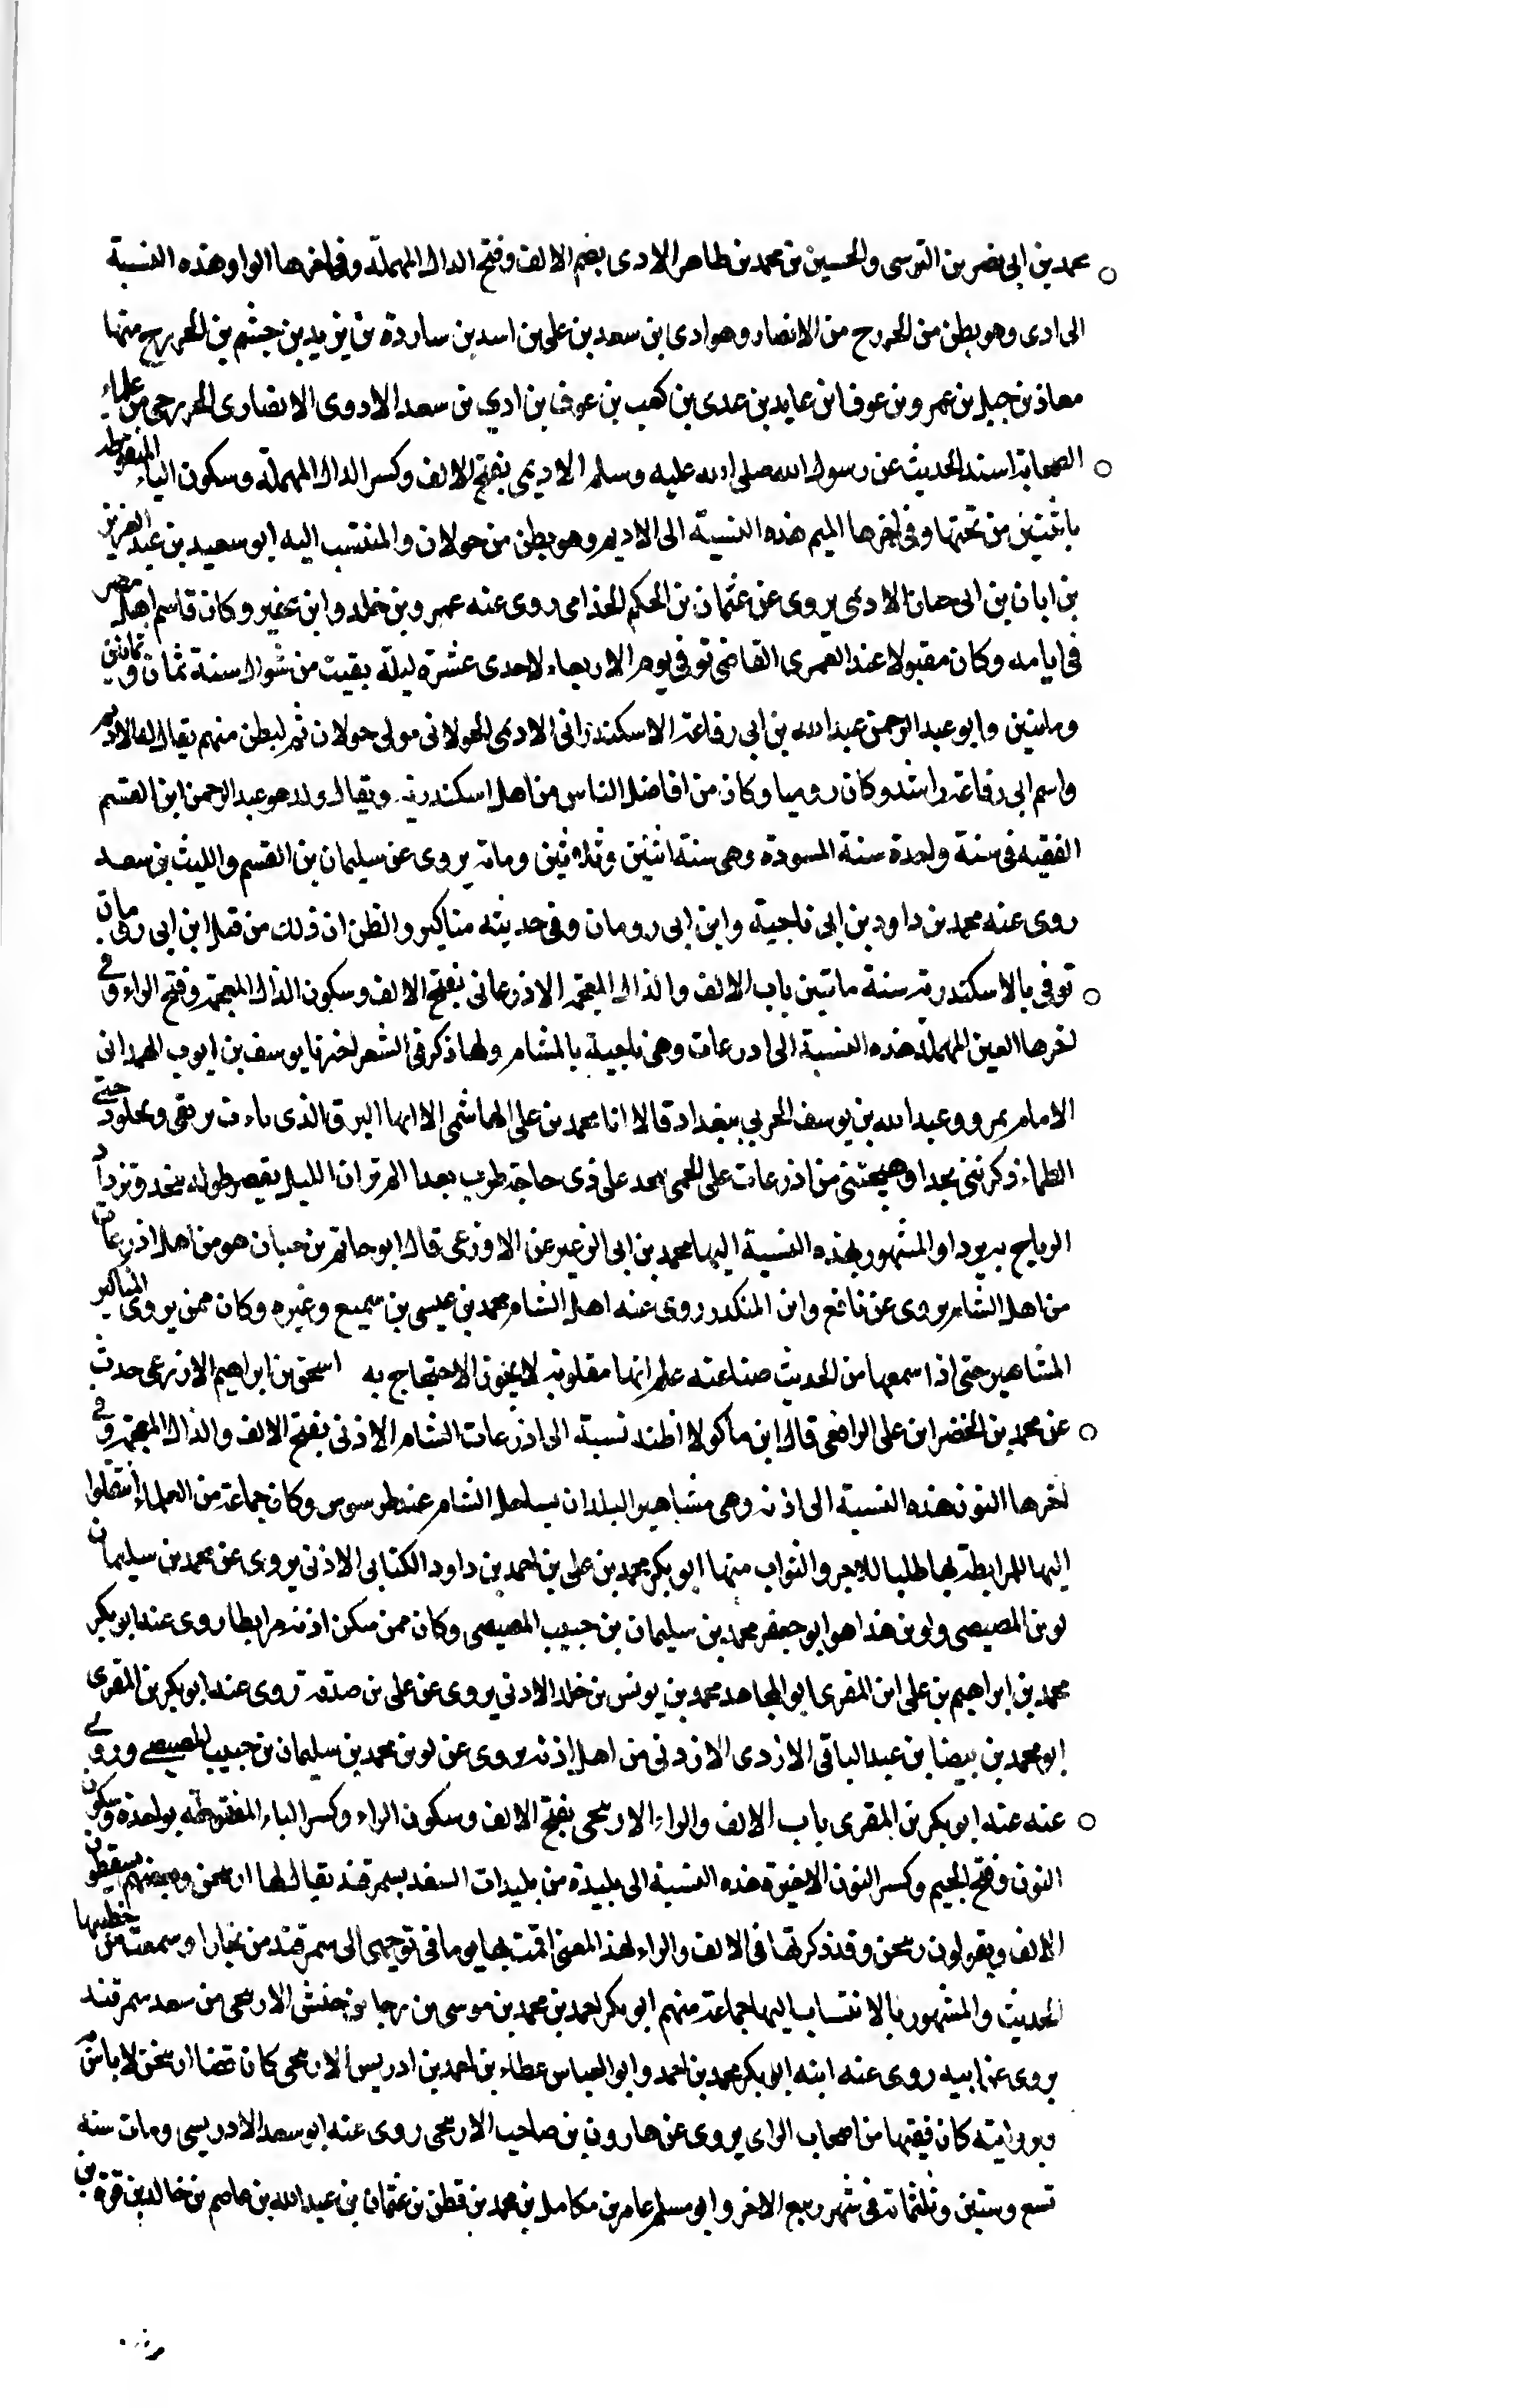 محمد بن ابى نصر بن التوسى والحسين بن محمد بن طاهر الادى بضم الالف وفتح الدال المهملة وفى اخرها الواو هذه النسبة
الى ادى وهو بطن من الخزرج من الانصار وهو ادى بن سعد بن على بن اسد بن ساردة بن يزيد بن جشم بن الخزرج منها
معاذ بن جبل بن عمرو بن عوف ابن عايد بن عدى بن كعب بن عوف بن ادي بن سعد الادوى الانصارى الخزرجى من علماء
الصحابة اسند الحديث عن رسول الله صلى الله عليه وسلم الاديمى بفتح الالف وكسر الدال المهملة وسكون الياء المنقوطة
باثنتين من تحتها وفى اخرها الميم هذه النسبة الى الاديم وهو بطن من خولان والمنتسب اليه ابو سعيد بن عبد العزيز
بن ابان بن ابى حيان الاديمى يروى عن عثمان بن الحكم الجذامى روى عنه عمرو بن خلد وابن عفير وكان قاسم اهل مصر
فى ايامه وكان مقبولا عند العمرى القاضى توفى يوم الاربعاء لاحدى عشرة ليلة بقيت من شوال سنة ثمان وثمانين
وماىتين وابو عبد الرحمن عبد الله بن ابى رفاعة الاسكندرانى الاديمى الخولانى مولى خولان ثم لبطن منهم يقال لها الاديم
واسم ابى رفاعة راشد وكان روميا وكان من افاضل الناس من اهل اسكندرية ويقال ولد هو عبد الرحمن ابن القسم
الفقيه فى سنة واحدة سنة المسودة وهى سنة اثنتين وثلاثين وماية يروى عن سليمان بن القسم والليث بن سعد
روى عنه محمد بن داود بن ابى ناجية وابن ابى رومان وفى حديثه مناكير والظن ان ذلك من قبل ابن ابى رومان
توفى بالاسكندرية سنة مائتين باب الالف والذال المعجمة الاذرعاتى بفتح الالف وسكون الذال المعجمة وفتح الراء وفي
اخرها العين المهملة هذه النسبة الى ادرعات وهى ناحية بالشام ولها ذكر فى الشعر اخبرنا يوسف بن ايوب الهمدانى
الامام بمرو وعبد الله بن يوسف الحربي ببغداد قالا انا محمد بن على الهاشمى الا ايها البرق الذى بات يرتقى ويجلو دجى
الظلماء ذكرتنى نجدا وهيجتنى من اذرعات على ذى حاجة طرب بعدا الم تر ان الليل يقصر طوله بنجد وتزداد
الرياح به بردا والمشهور بهذه النسبة اليها محمد بن ابى الزعيزعن الاوزعى قال ابو حاتم بن حبان هو من اهل اذرعات
من اهل الشام يروى عن نافع وابن المنكدر روى عنه اهل الشام محمد بن عيسى بن سميع وغيره وكان ممن يروى المناكير
المشاهير حتى اذا سمعها من الحديث صناعته علم انها مقلوبة لا يجوز الاحتجاج به اسحق بن ابراهيم الاذرعى حدث
عن محمد بن الخضر ابن على الرافقى قال ابن ماكولا اظنه نسبة الى اذرعات الشام الاذنى بفتح الالف والذال المعجمة وفي
اخرها النون هذه النسبة الى اذنه وهى مشاهير البلدان بساحل الشام عند طرسوس وكان جماعة من العلماء انتقلوا
اليها للمرابطة بها طلبا للاجر والثواب منها ابو بكر محمد بن على بن احمد بن داود الكتانى الاذنى يروى عن محمد بن سليمان
لوين المصيصى ولوين هذا هو ابو جعفر محمد بن سليمان بن حبيب المصيصى وكان ممن سكن اذنه مرابطا روى عنه ابو بكر
محمد بن ابراهيم بن على ابن المقرى ابو المجاهد محمد بن يونس بن خلد الادنى يروى عن على بن صدقة روى عنه ابو بكر بن المقرى
ابو محمد بن بيضا بن عبد الباقى الازدى الاذنى من اهل اذنه يروى عن لوين محمد بن سليمان بن حبيب المصيصي وروي
عنه عنه ابو بكر بن المقرى باب الالف والراء الاربنجنى بفتح الالف وسكون الراء وكسر الباء المنقوطة بواحدة وسكون
النون وفتح الجيم وكسر النون الاخيرة هذه النسبة الى بليدة من بليدات السغد بسمرقند يقال لها اربنجن وبعضهم يسقطون
الالف ويقولون ربنجن وقد ذكرتها فى الالف والراء لهذا المعنى اقمت بها يوما فى توجهى الى سمرقند من بخارا وسمعت من خطيبها
الحديث والمشهور بالانتساب اليها جماعة منهم ابو بكر احمد بن محمد بن موسى بن رجا بن حنش الاربنجنى من سعد سمرقند
يروى عن ابيه روى عنه ابنه ابو بكر محمد بن احمد وابو العباس عطاء بن احمد بن ادريس الاربنجنى كان بقضا اربنجن لا باس
وبروايته كان فقيها من اصحاب الراى يروى عن هارون بن صاحب الاربنجنى روى عنه ابو سعد الادريسى ومات سنة
تسع وستين وثلثماية فى شهر ربيع الاخر وابو مسلم عامر بن مكامل بن محمد بن قطن بن عثمان بن عبد الله بن عاصم بن خالد بن قرة بن